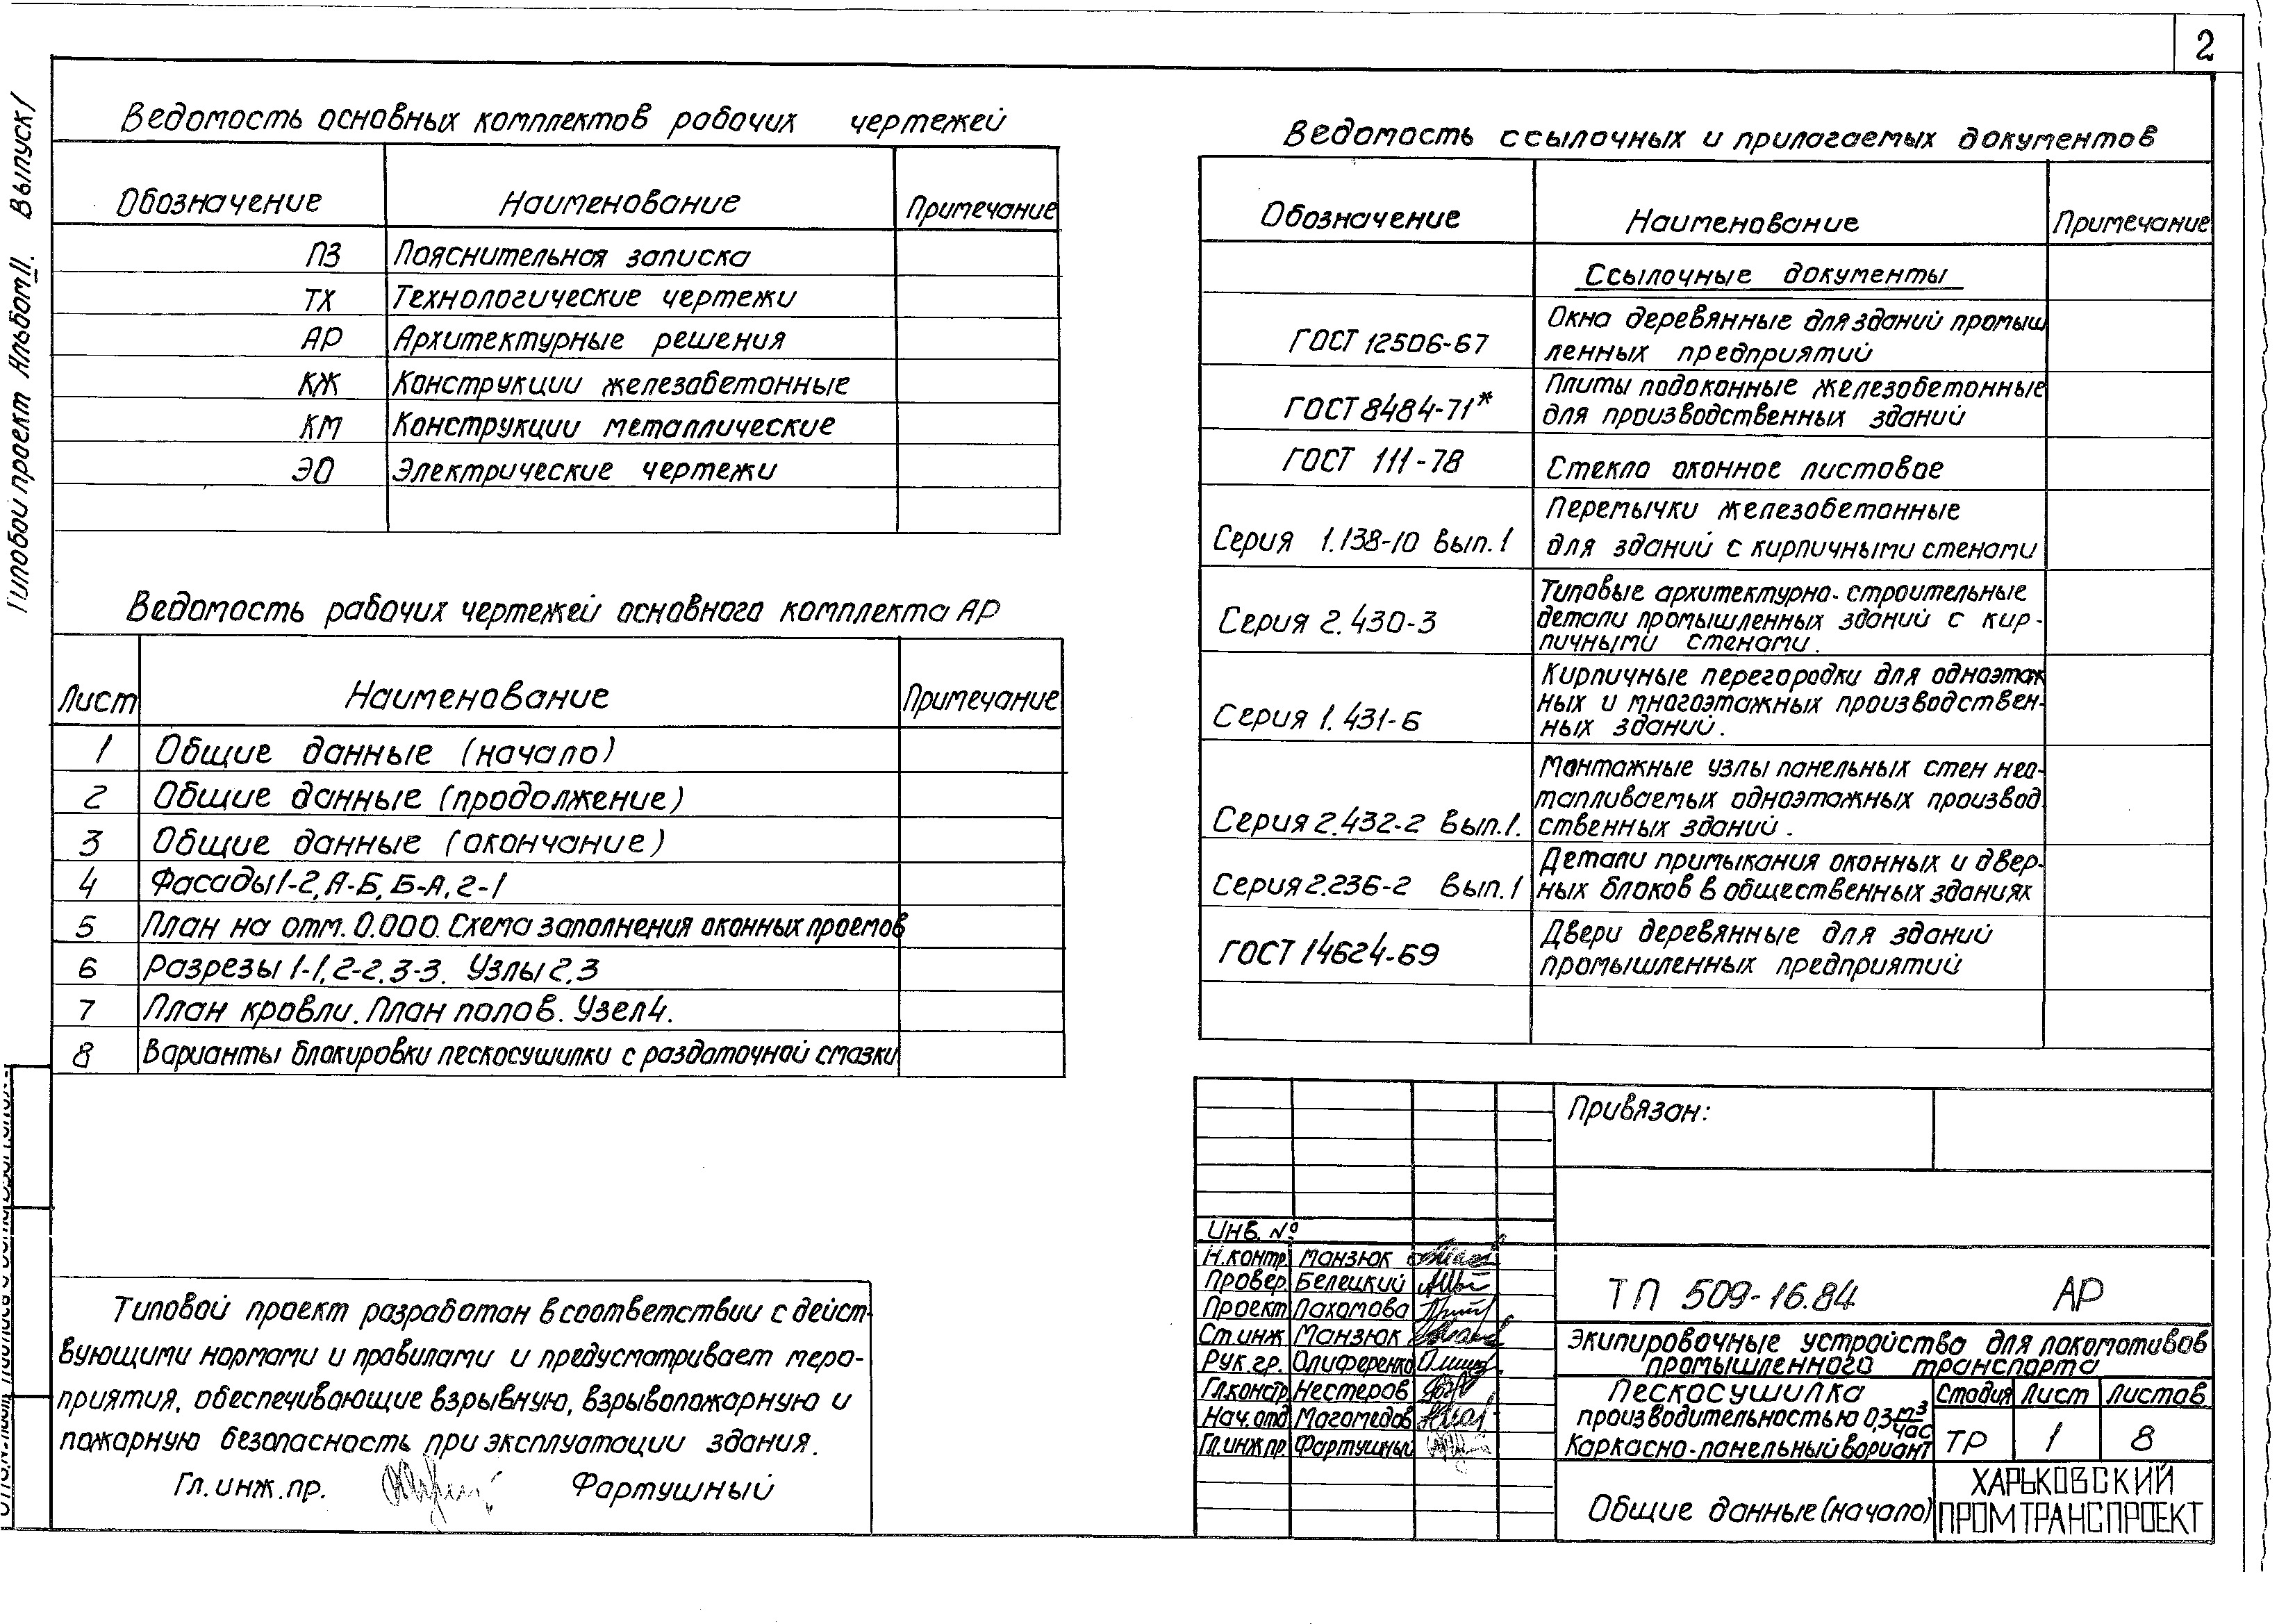 2
Типовой проект Альбом II. Выпуск 1
Ведомость основных комплектов рабочих чертежей
Обозначение Наименование Примечание
ПЗ Пояснительная записка
ТХ Технологические чертежи
АР Архитектурные решения
КЖ Конструкции железобетонные
КМ Конструкции металлические
ЭО Электрические чертежи
Ведомость рабочих чертежей основного комплекта АР
Лист Наименование Примечание
1 Общие данные (начало)
2 Общие данные (продолжение)
3 Общие данные (окончание)
4 Фасады 1-2, А-Б, Б-А, 2-1
5 План на отм. 0.000. Схема заполнения оконных проемов
6 Разрезы 1-1, 2-2, 3-3. Узлы 2,3
7 План кровли. План полов. Узел 4.
8 Варианты блокировки пескосушилки с раздаточной смазки
Типовой проект разработан в соответствии с дейст-
вующими нормами и правилами и предусматривает меро-
приятия, обеспечивающие взрывную, взрывопожарную и
пожарную безопасность при эксплуатации здания.
Гл. инж. пр. Фартушный
Ведомость ссылочных и прилагаемых документов
Обозначение Наименование Примечание
Ссылочные документы
ГОСТ 12506-67 Окна деревянные для зданий промыш
ленных предприятий
ГОСТ 8484-71* Плиты подоконные железобетонные
для производственных зданий
ГОСТ 111-78 Стекло оконное листовое
Серия 1.138-10 Вып. 1 Перемычки железобетонные
для зданий с кирпичными стенами
Серия 2.430-3 Типовые архитектурно-строительные
детали промышленных зданий с кир-
пичными стенами.
Серия 1.431-6 Кирпичные перегородки для одноэтаж
ных и многоэтажных производствен-
ных зданий.
Серия 2.432-2 Вып. 1. Монтажные узлы панельных стен нео-
тапливаемых одноэтажных производ
ственных зданий.
Серия 2.236-2 Вып. 1 Детали примыкания оконных и двер-
ных блоков в общественных зданиях
ГОСТ 14624-69 Двери деревянные для зданий
промышленных предприятий
Привязан:
Инв. №
Н.контр. Манзюк
Провер. Белецкий
Проект Пахомова
Ст.инж Манзюк
Рук.гр. Олиференко
Гл.констр Нестеров
Нач.отд Магомедов
Гл.инж.пр. Фартушный
ТП 509-16.84 АР
Экипировочные устройства для локомотивов
промышленного транспорта
Пескосушилка
производительностью 0,3 м³/час
Каркасно-панельный вариант
Стадия Лист Листов
ТР 1 8
Общие данные (начало)
ХАРЬКОВСКИЙ
ПРОМТРАНСПРОЕКТ